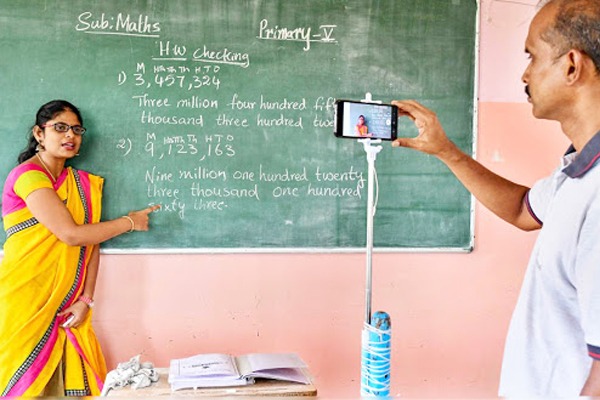 Sub: Maths
Primary-V
H.W checking
M HTh TTh Th H T O
1) 3,457,324
Three million four hundred
thousand three hundred
M HTh TTh Th H T O
2) 9,123,163
Nine million one hundred twenty
three thousand one hundred
sixty three.